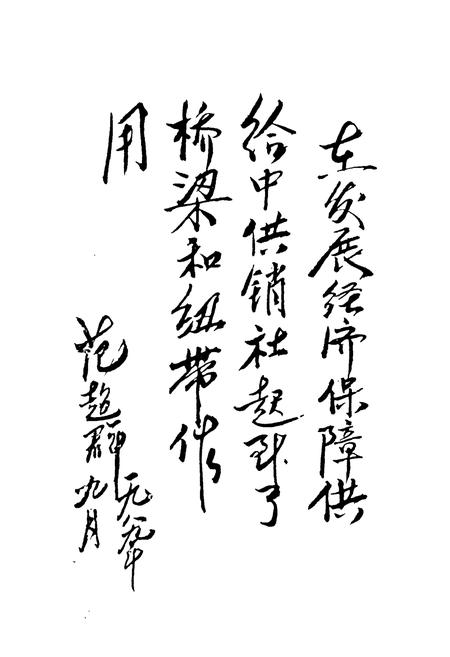 在发展经济保障供
给中供销社起到了
桥梁和纽带作
用
范超群
一九八九年
九月